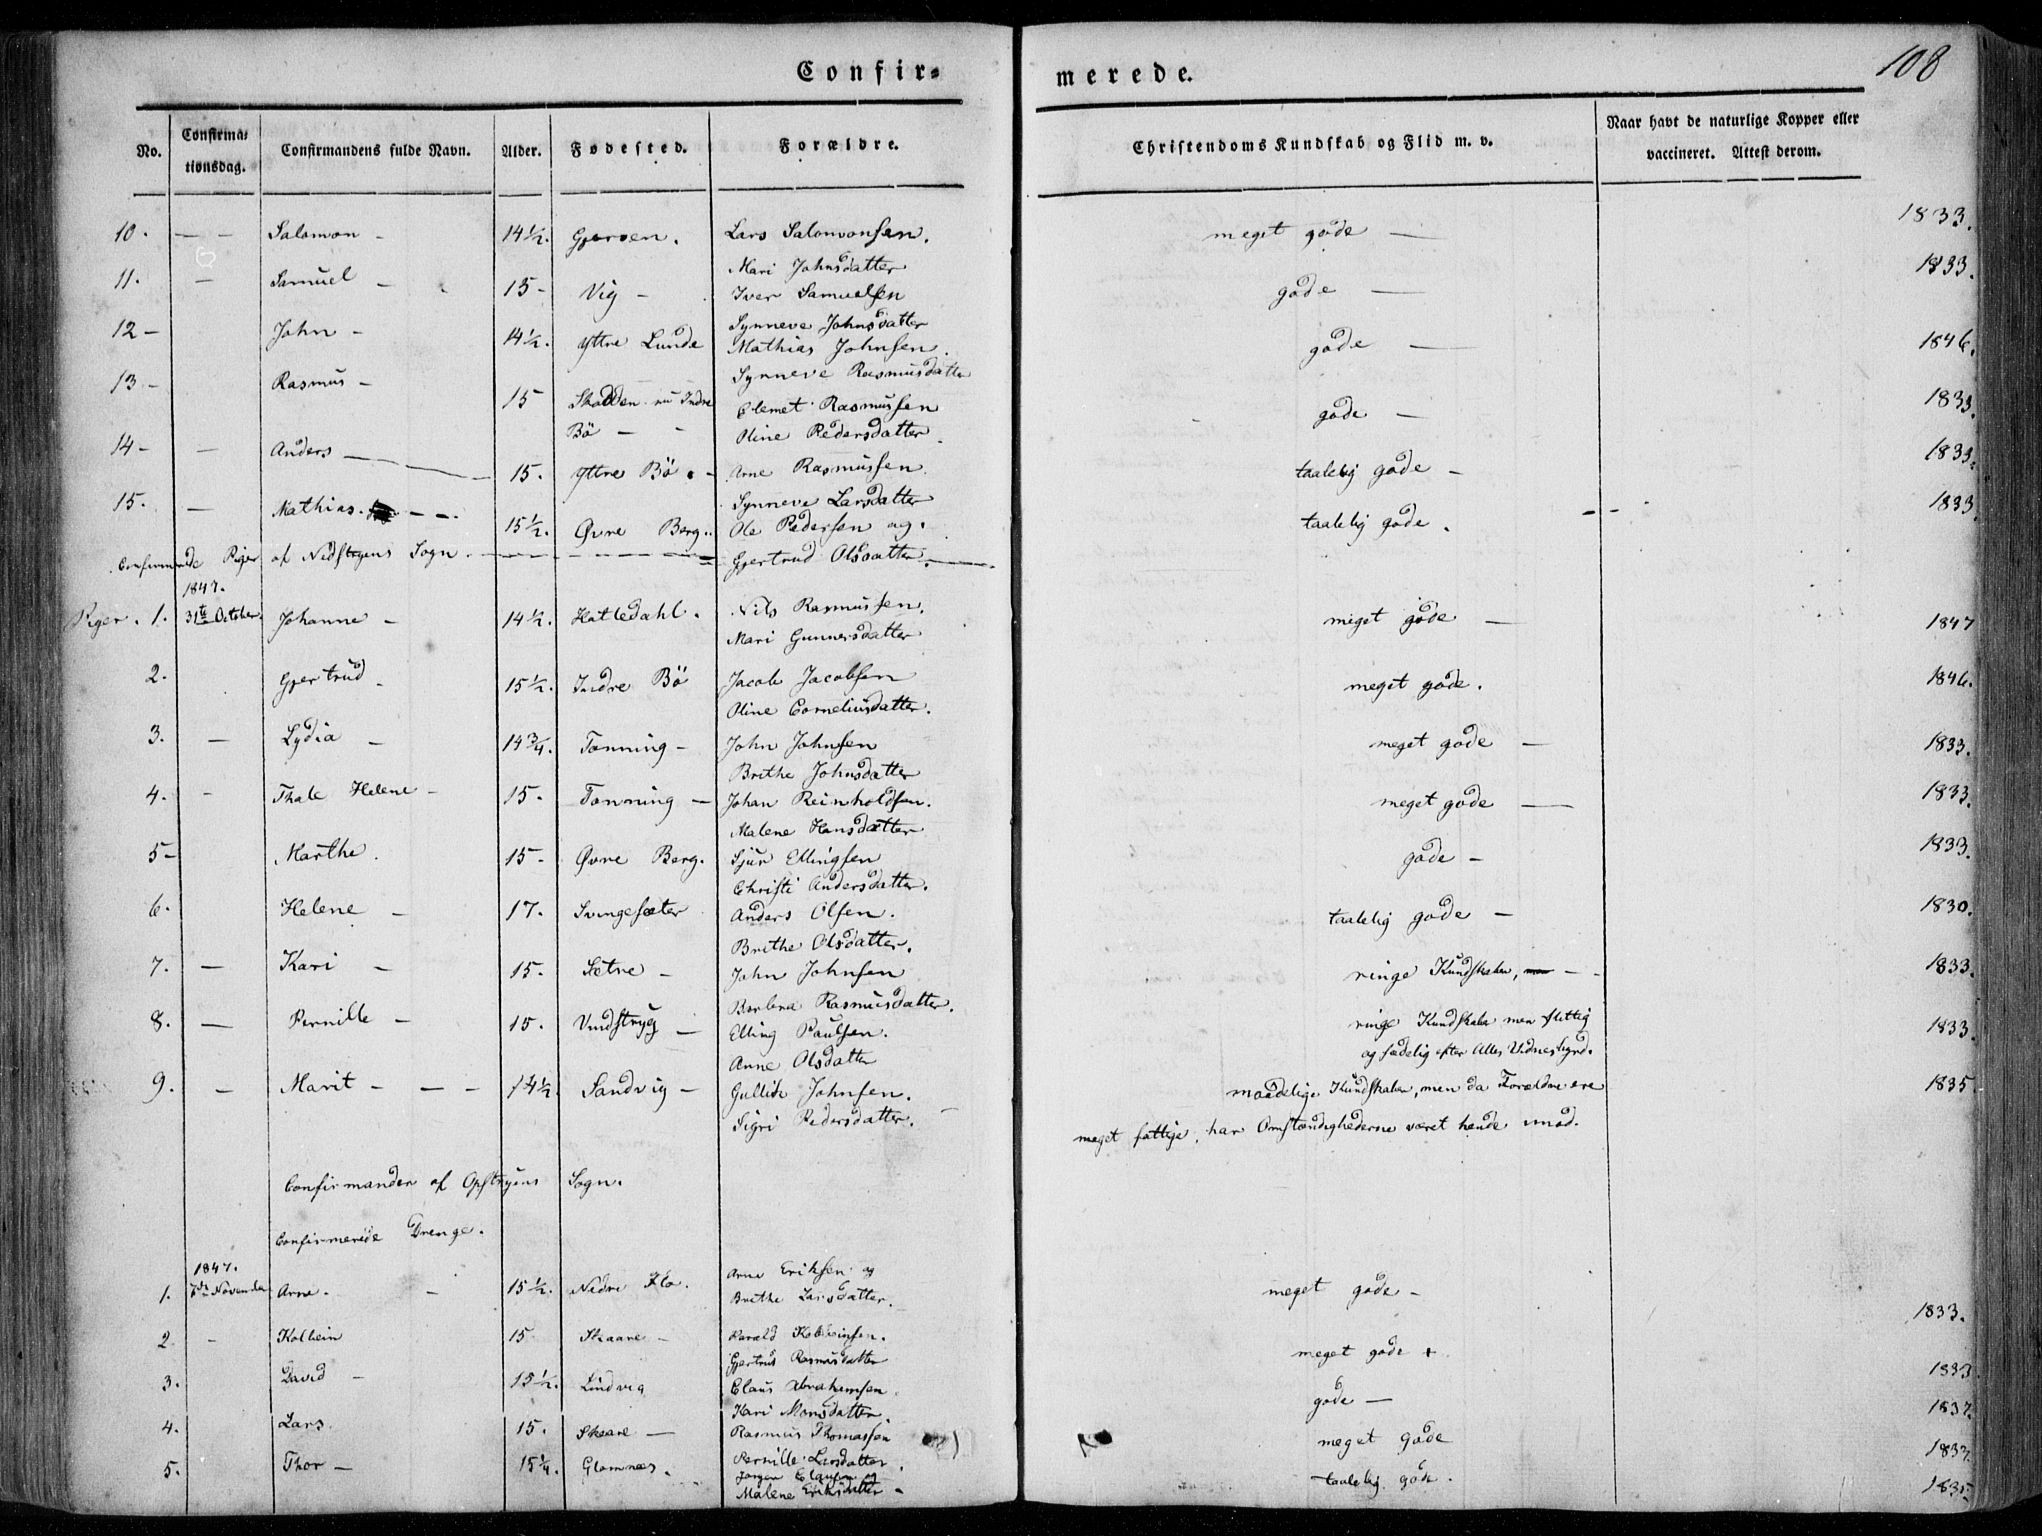 Confir-
merede.
108
No.
Confirma-
tionsdag.
Confirmandens fulde Navn.
Alder.
Fødested.
Forældre.
Christendoms Kundskab og Flid m. v.
Naar havt de naturlige Kopper eller
vaccineret. Attest derom.
10. — — Salomon — 14½. Lars Salomonsen. meget gode — 1833.
Mari Johnsdatter
11. — Samuel — 15 — Vig — Iver Samuelsen gode — 1833.
Synneve Johnsdatter
12 — John — 14½. Yttre Lunde Mathias Johnsen gode — 1846.
Synneve Rasmusdatter
13 — Rasmus — 15 nu Indre Clemet Rasmussen gode — 1833.
Bö — Oline Pedersdatter
14 — — Anders — 15. Yttre Bö. — Arne Rasmussen taalelig gode — 1833.
Synneve Larsdatter
15. — Mathias. — — 15½. Øvre Berg. Ole Pedersen og taalelig gode. 1833.
Confirmerede Piger af Nedstryens Sogn. Gjertrud Olsdatter.
1847.
Piger. 1. 31te October. Johanne — 14½. Hatledahl. Nils Rasmussen. meget gode — 1847
Mari Gunnersdatter
2. Gjertrud — 15½. Indre Bö Jacob Jacobsen meget gode. 1846.
Oline Corneliusdatter.
3. — Lydia — 14¾. Tonning — John Johnsen meget gode — 1833.
Brithe Johnsdatter
4. — Thale Helene — 15. Tonning — Johan Reinholdsen. meget gode — 1833.
Malene Hansdatter
5 — Marthe. 15 — Øvre Berg. Sjur Ellingsen gode — 1833.
Christi Andersdatter.
6. Helene — 17. Svingesæter Anders Olsen. taalelig gode — 1830.
Brithe Olsdatter.
7. — Kari — 15. Sætre — John Johnsen ringe Kundskaber, — 1833.
Barbra Rasmusdatter.
8. — Pernille — 15. Vindstryg — Elling Paulsen. ringe Kundskaber men flittig 1833.
Anne Olsdatter og sædelig efter Alles Vidnesbyrd.
9. — Marit — — — 14½. Sandvig — Gullik Johnsen. maadelige Kundskaber, men da Forældre ere 1835.
Sigri Pedersdatter. meget fattige, har Omstændighederne været hende imod.
Confirmander af Opstryens Sogn.
Confirmerede Drenge.
1847.
1. 7de November Arne. — 15½. Nedre Flo. Arne Eriksen og meget gode — 1833.
Brithe Larsdatter.
2. — Kolbein 15 Skaare — Harald Kolbeinsen. meget gode 1833
Gjertrud Rasmusdatter
3. David — 15½. Lindvig Claus Abrahamsen. gode —
Kari Monsdatter.
4. Lars 15. Skaare — Rasmus Thomassen meget gode
Pernille Larsdatter
5. Thor — 15¼. Glomnæs. Jorgen Clausen og taalelig gode. 1835
Malene Eriksdatter —